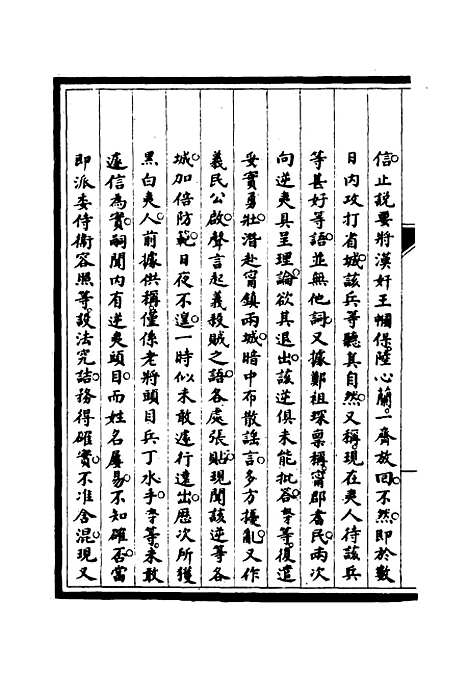 信止説要將漢奸王幗保陸心蘭一齊放回不然即於數
日内攻打省城該兵等聽其自然又稱現在夷人待該兵
等甚好等語並無他詞又據鄭祖琛稟稱甯郡耆民兩次
向逆夷具呈理論欲其退出該逆俱未能批答等復遣
妥實勇壯潛赴甯鎮兩城暗中布散謡言多方擾亂又作
義民公啟聲言起義殺賊之語各處張貼現聞該逆等各
城加倍防範日夜不遑一時似未敢遽行遠出歷次所獲
黑白夷人前據供稱僅係老將頭目兵丁水手等未敢
遽信為實嗣聞内有逆夷頭目而姓名屢易不知確否當
即派委侍衛容照等設法究詰務得確實不准含混現又